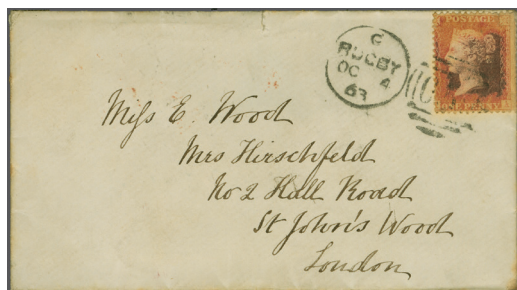 POSTAGE
ONE PENNY
C
RUGBY
OC 4
63
Miss E. Wood
Mrs Hirschfeld
No 2 Hall Road
St John's Wood
London